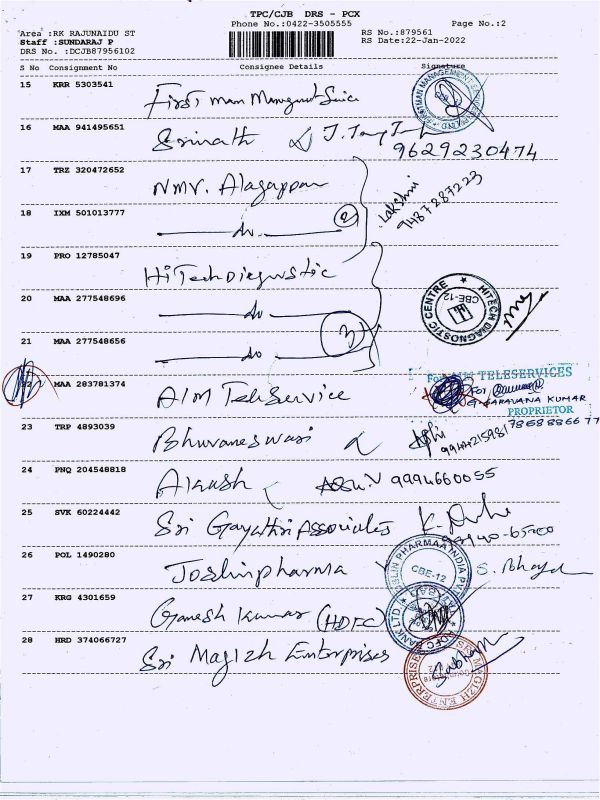 TPC/CJB DRS - PCX
Phone No.:0422-3505555
Page No.:2
Area :RK RAJUNAIDU ST
RS No.:879561
Staff :SUNDARAJ P
RS Date:22-Jan-2022
DRS No. :DCJB87956102
S No Consignment No Consignee Details Signature
15 KRR 5303541 First man Management
16 MAA 941495651 Srinath
9629230474
17 TRZ 320472652 NMV. Alagappan
Lakshmi
9487287223
18 IXM 501013777 do. 2
19 PRO 12785047 HiTech Diagnostic
HITECH DIAGNOSTIC CENTRE
CBE-12
20 MAA 277548696 do
3
21 MAA 277548656 do
22 MAA 283781374 AIM TeleService
For AIM TELESERVICES
For
G. SARAVANA KUMAR
PROPRIETOR
23 TRP 4893039 Bhuvaneswari
9944215981
24 PNQ 204548818 Akash
9994660055
25 SVK 60224442 Sri Gayathri Associates
26 POL 1490280 Joslinpharma
JOSLIN PHARMAA INDIA
CBE-12
27 KRG 4301659 Ganesh Kumar (HDFC)
HDFC BANK LTD
28 HRD 374066727 Sri Magizh Enterprises
SRI MAGIZH ENTERPRISES